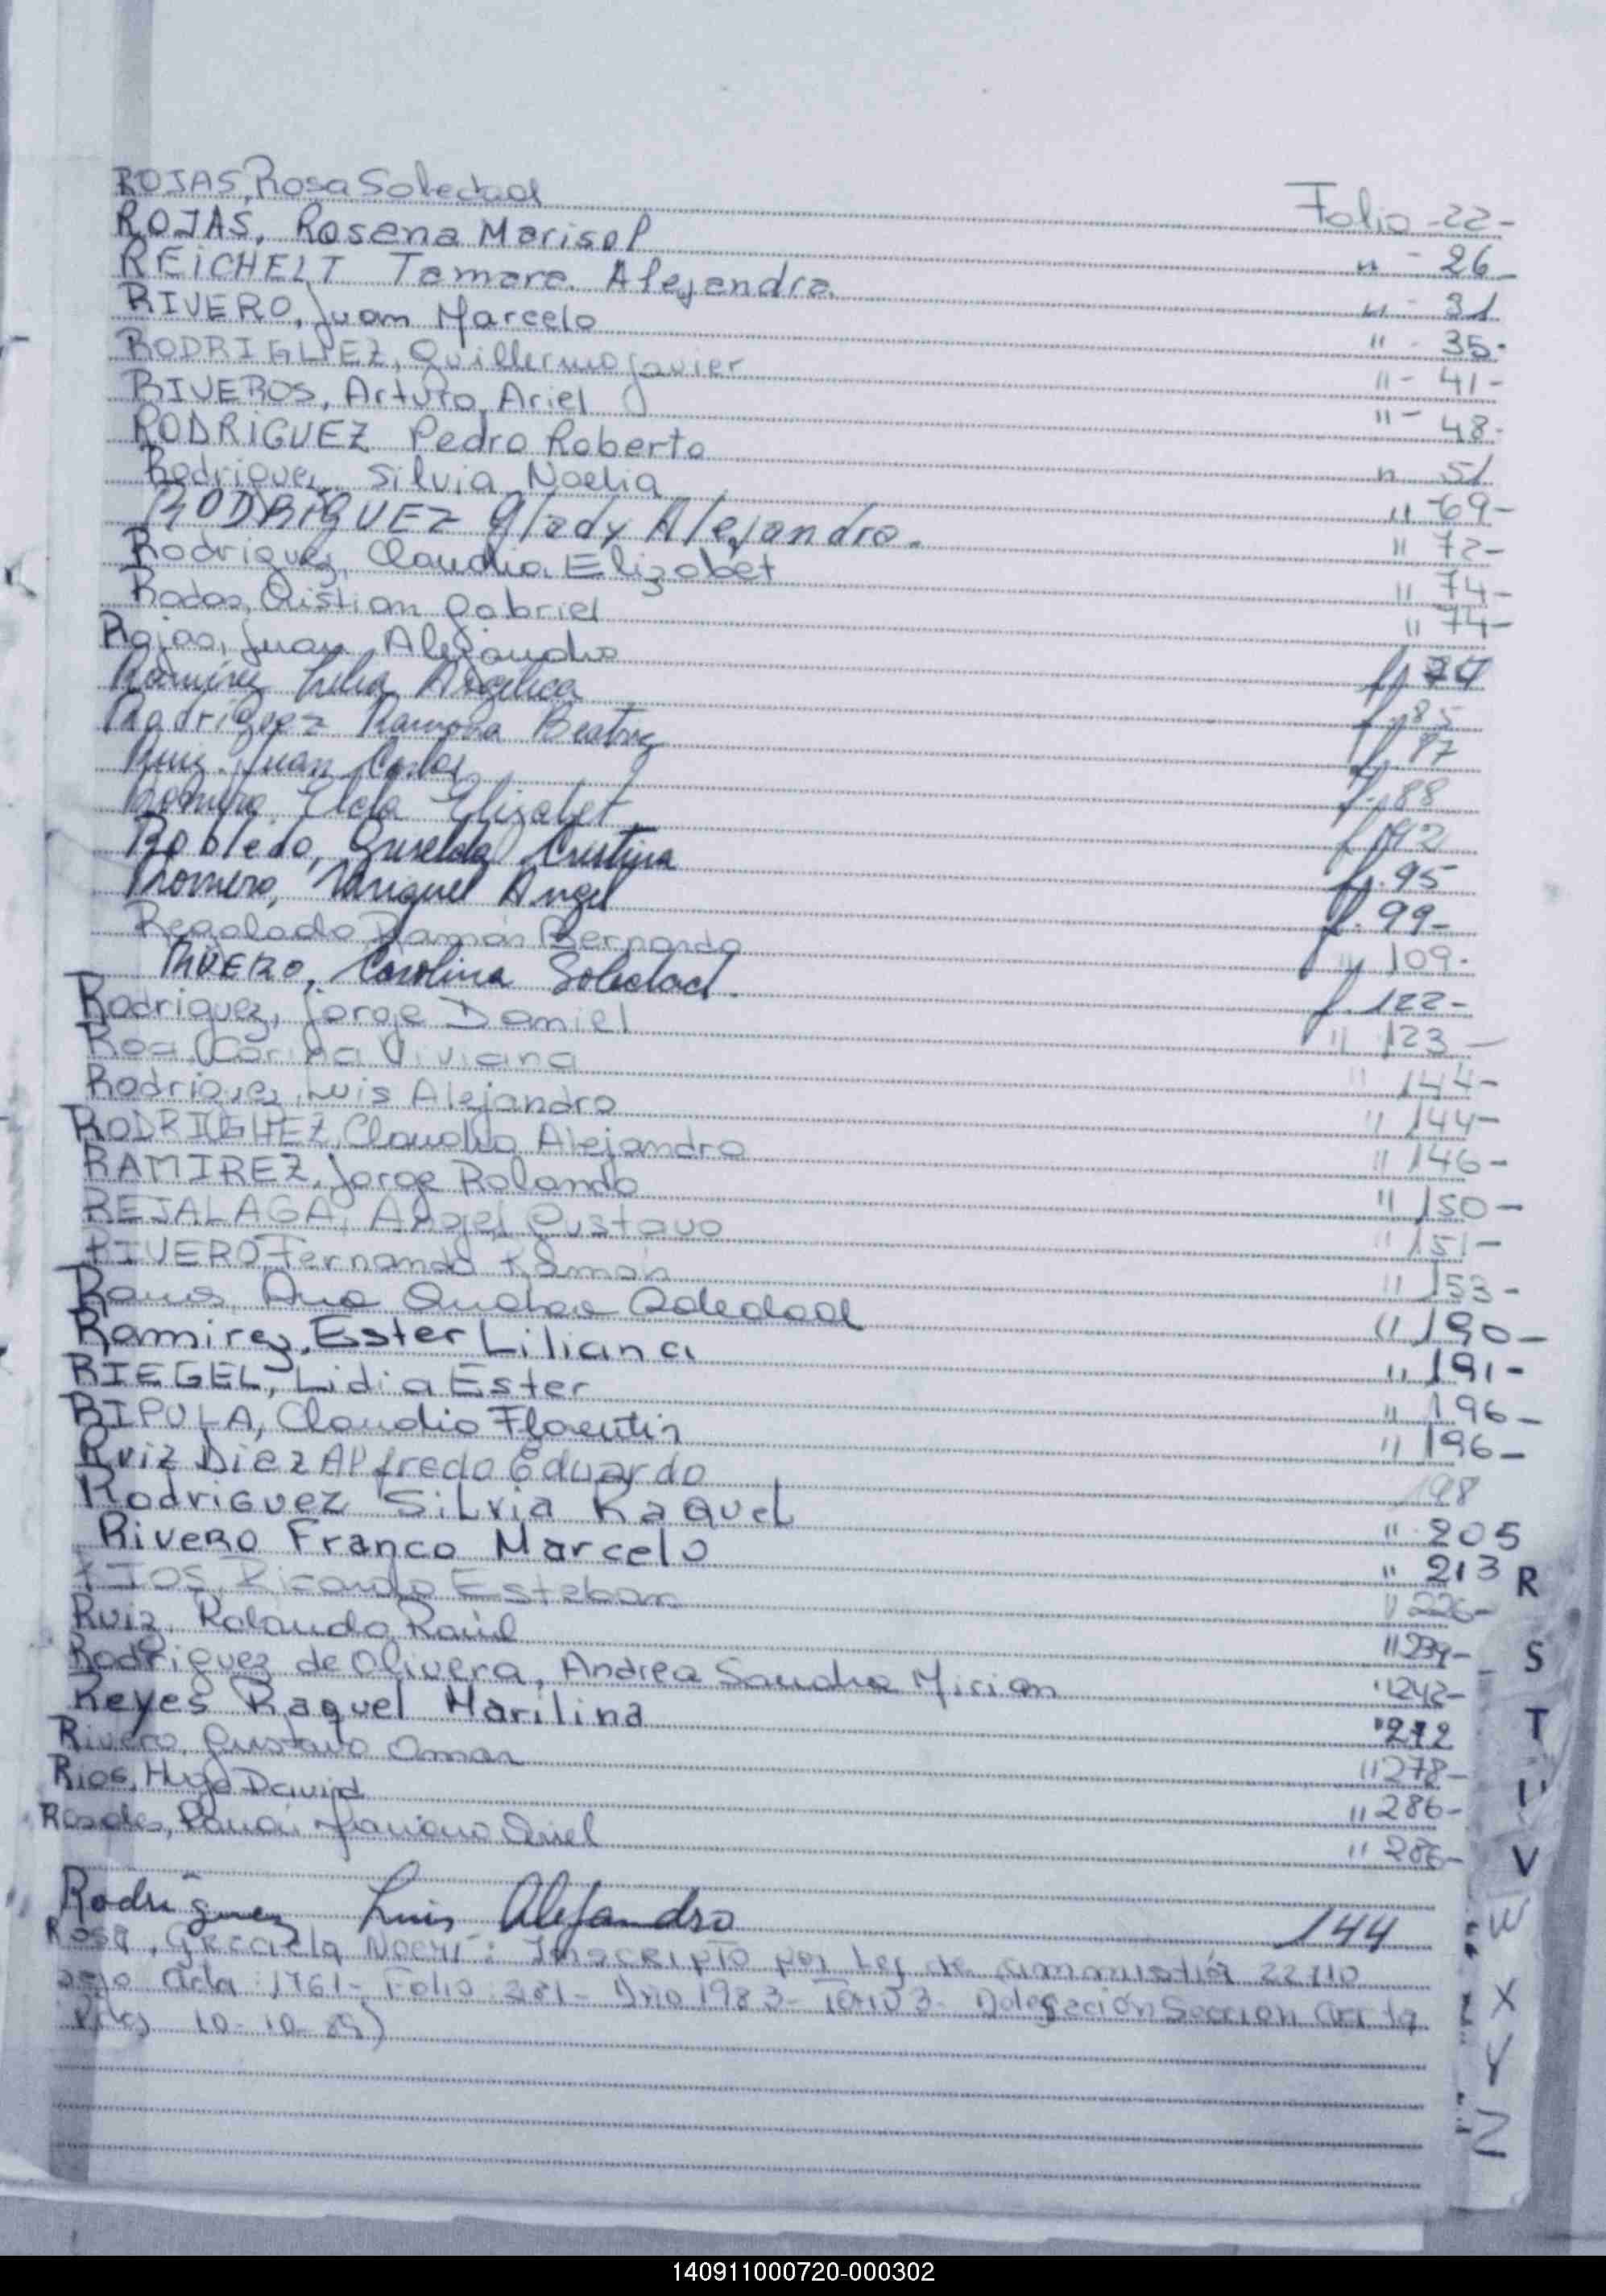 ROJAS, Rosa Soledad Folio -22-
ROJAS, Rosana Marisol " - 26-
REICHELT Tamara Alejandra " - 31
RIVERO, Juan Marcelo " - 35-
RODRIGUEZ, Guillermo Javier " - 41-
RIVEROS, Arturo Ariel " - 48-
RODRIGUEZ Pedro Roberto " 51
Rodriguez Silvia Noelia " 69-
RODRIGUEZ Glady Alejandra " 72-
Rodriguez, Claudia Elizabet " 74-
Rodas, Cristian Gabriel " 74-
Rojas, Juan Alejandro
Ramirez Lelia Angelica f. 85
Rodriguez Ramona Beatriz f. 87
Ruiz Juan Carlos f. 88
Romero Elda Elizabet f. 92
Robledo, Griselda Cristina f. 95
Romero, Miguel Angel f. 99-
Regalado Ramón Bernardo " 109-
RIVERO, Carolina Soledad f. 122-
Rodriguez, Jorge Daniel " 123-
Roa, Carina Viviana " 144-
Rodriguez, Luis Alejandro " 144-
RODRIGUEZ, Claudia Alejandra " 146-
RAMIREZ, Jorge Rolando " 150-
REJALAGA, Angel Gustavo " 151-
RIVERO, Fernando Ramón " 153-
Ana Soledad " 190-
Ramirez, Ester Liliana " 191-
RIEGEL, Lidia Ester " 196-
RIPULA, Claudio Florentin " 196-
Ruiz Diez Alfredo Eduardo 198
Rodriguez Silvia Raquel " 205
Rivero Franco Marcelo " 213
RIOS, Ricardo Esteban " 226-
Ruiz, Rolando Raúl " 239-
Rodriguez de Olivera, Andrea Sandra Mirian " 242-
Reyes Raquel Marilina " 272
Rivero, Gustavo Omar " 278-
Rios, Hugo David " 286-
Ramón Mariano Ariel " 286-
Rodriguez Luis Alejandro 144
Rosa, Graciela Noemí: Inscripto por Ley de ammistía 22110
Acta 1761- Folio 281- Año 1983- Tomo 3- Delegación Sección Cuarta
10-10-89)
R
S
T
U
V
W
X
Y
Z
140911000720-000302